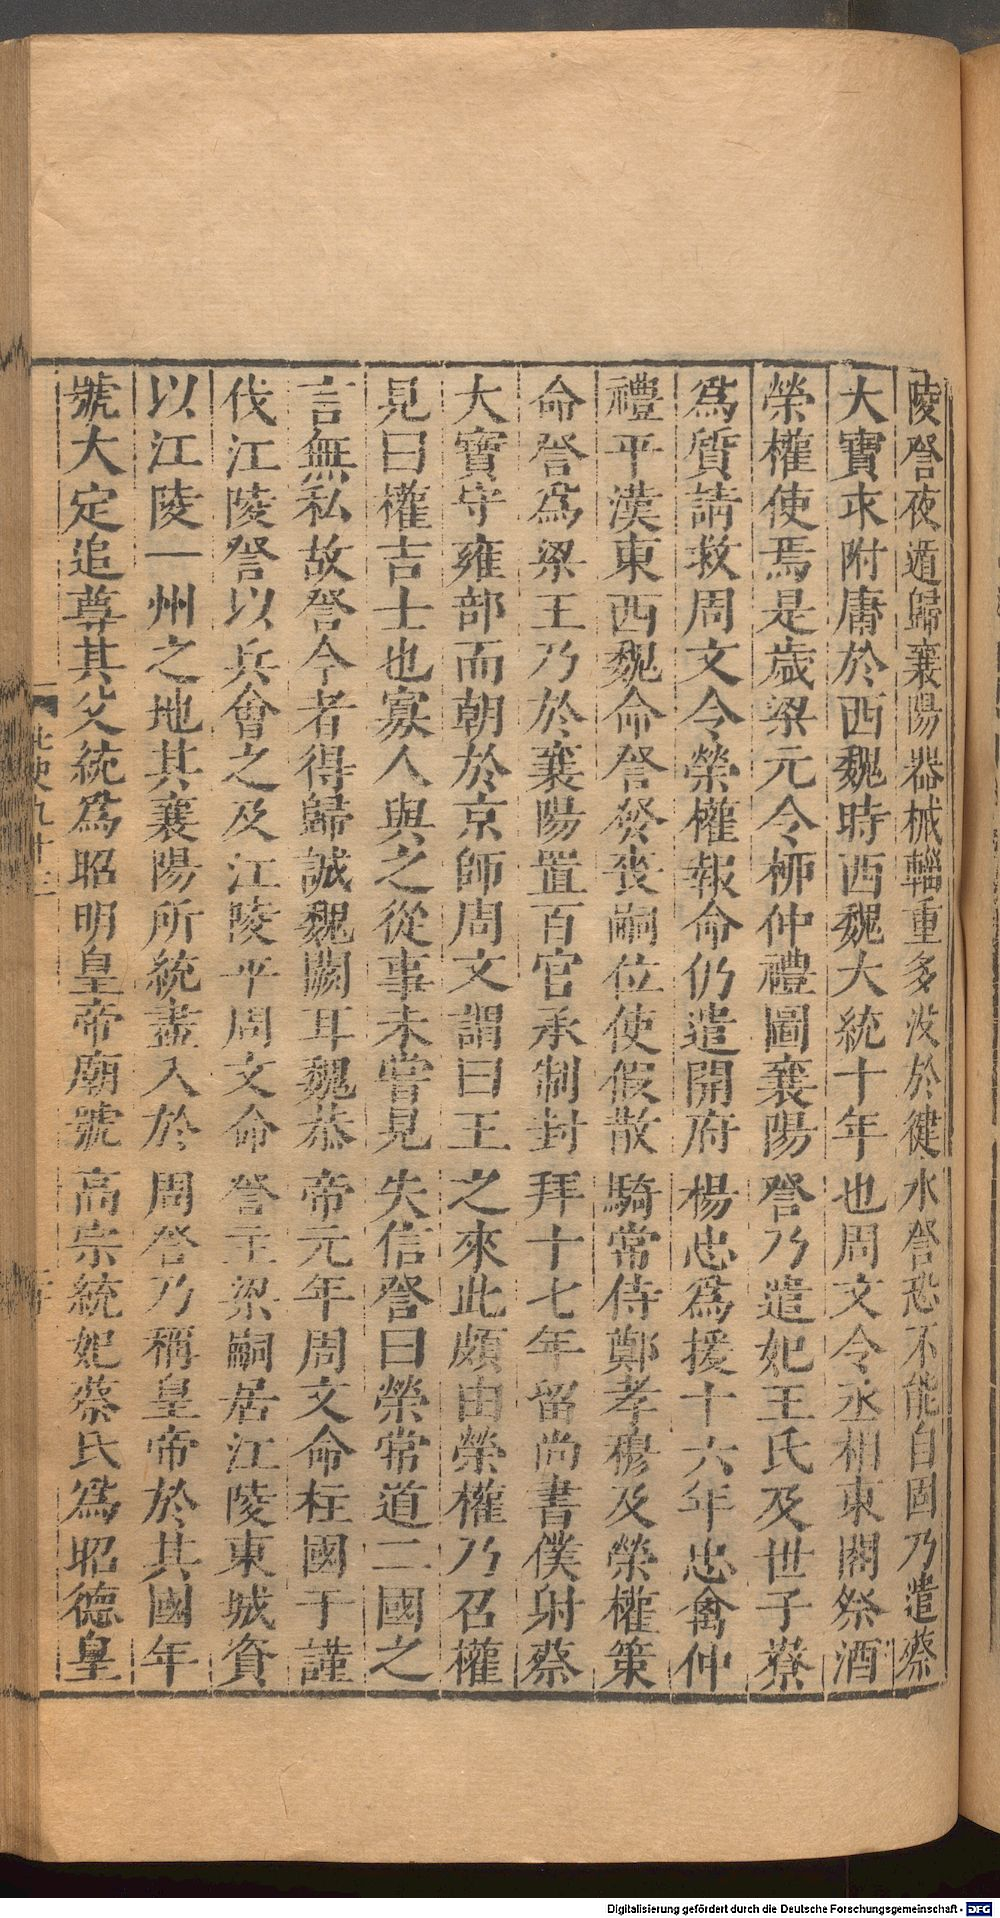 陵詧夜遁歸襄陽器械輜重多没於㵐水詧恐不能自固乃遣蔡
大寶求附庸於西魏時西魏大統十年也周文令丞相東閤祭酒
榮權使焉是歲梁元令柳仲禮圖襄陽詧乃遣妃王氏及世子嶚
爲質請救周文令榮權報命仍遣開府楊忠爲援十六年忠禽仲
禮平漢東西魏命詧發喪嗣位使假散騎常侍鄭孝穆及榮權策
命詧爲梁王乃於襄陽置百官承制封拜十七年留尚書僕射蔡
大寶守雍部而朝於京師周文謂曰王之來此頗由榮權乃召權
見曰權吉士也寡人與之從事未嘗見失信詧曰榮常道二國之
言無私故詧今者得歸誠魏闕耳魏恭帝元年周文命柱國于謹
伐江陵詧以兵會之及江陵平周文命詧主梁嗣居江陵東城資
以江陵一州之地其襄陽所統盡入於周詧乃稱皇帝於其國年
號大定追尊其父統爲昭明皇帝廟號高宗統妃蔡氏爲昭德皇
北史九十三
Digitalisierung gefördert durch die Deutsche Forschungsgemeinschaft - DFG